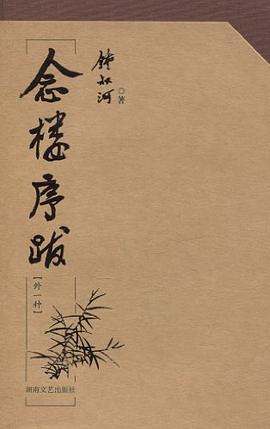 念楼序跋
【外一种】
锺叔河
◎著
湖南文艺出版社